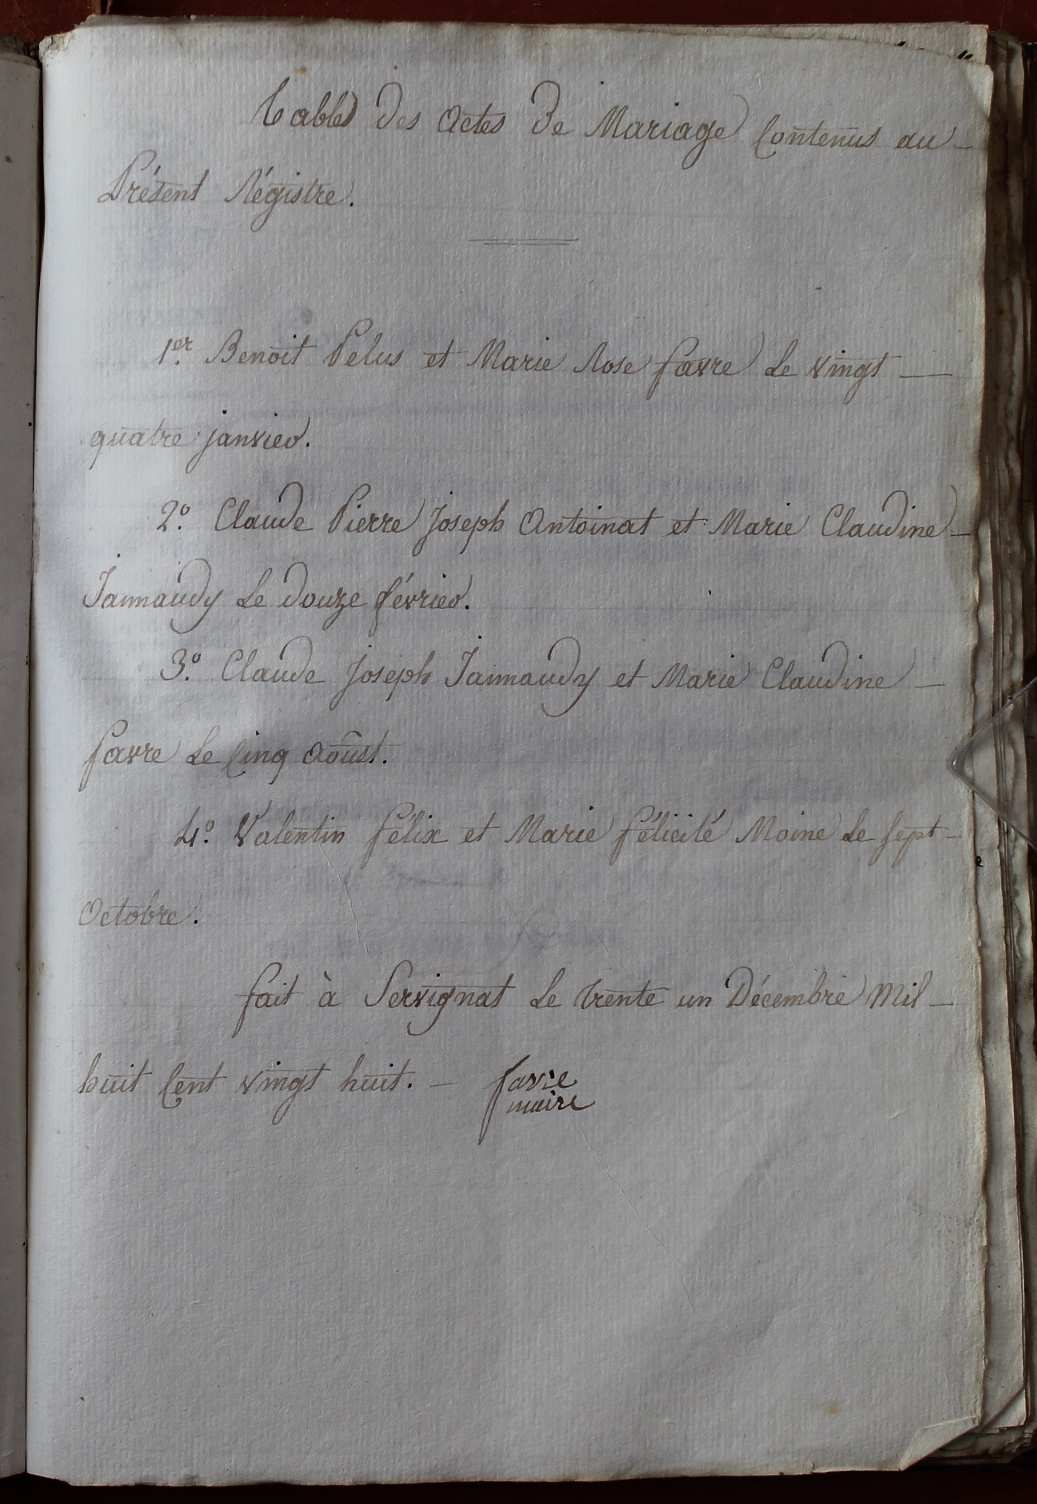 Table des actes de Mariage Contenus au
Présent Régistre.
1er. Benoit Pelus et Marie Rose favre Le vingt
quatre janvier.
2º. Claude Pierre Joseph Antoinat et Marie Claudine
Jannaudy Le douze février.
3º. Claude Joseph Jannaudy et Marie Claudine
favre Le Cinq Août.
4º. Valentin félix et Marie félicité Moine Le Sept
Octobre.
fait à Servignat Le trente un Décembre Mil
huit Cent vingt huit. favre
maire